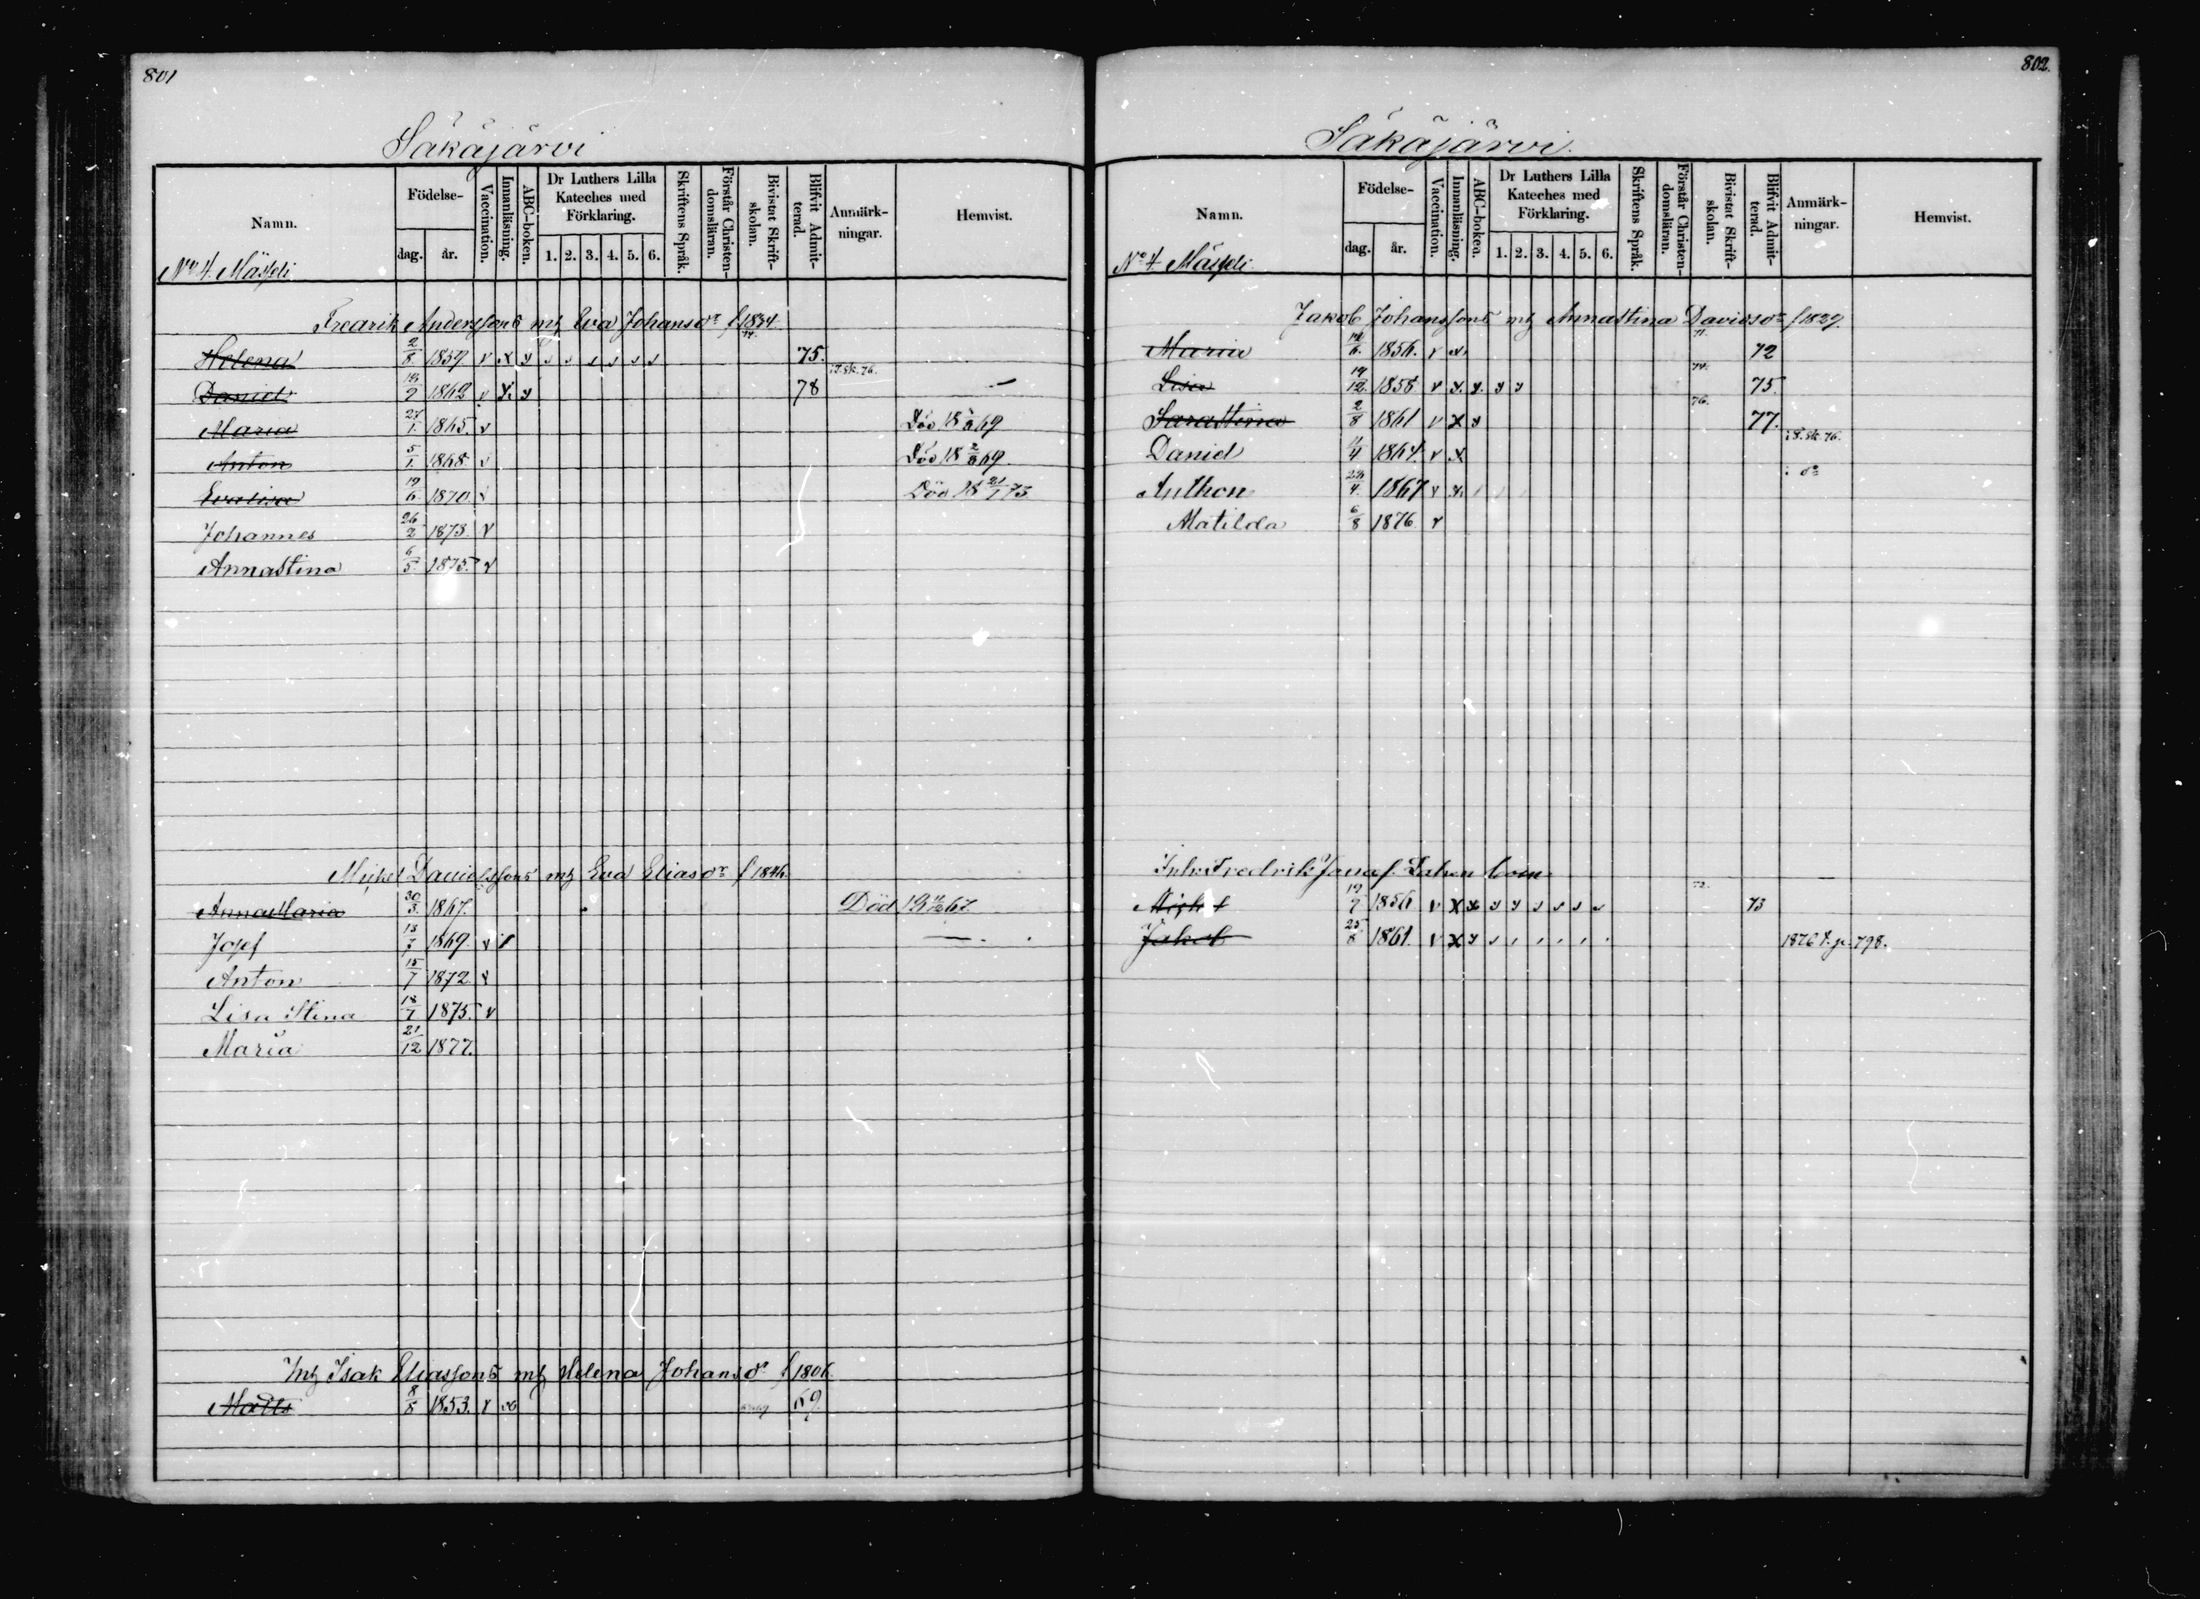 801
Säkäjärvi
Namn.
Födelse-
dag.
år.
Vaccination.
Innanläsning.
ABC-boken.
Dr Luthers Lilla Kateches med Förklaring.
1. 2. 3. 4. 5. 6.
Skriftens Språk.
Förstår Christen-domsläran.
Bivistat Skrift-skolan.
Blifvit Admit-terad.
Anmärk-ningar.
Hemvist.
Nº 4.
Fredrik Anderssons mh Eva Johansdr f 1834.
Helena 2/8 1859 v x y 75.
Daniel 9 1862 v x y 78
Maria 27/1 1865. v Död 18 69
Anton 5/1 1868. v Död 18 69
Evalisa 19/6 1870. v Död 18 21/1 73
Johannes 26/2 1873. v
Annastina 6/5 1875. v
Michel Danielssons mh Eva Eliasdr f 1846.
AnnaMaria 30/3 1867. Död 67.
Josef 13/7 1869. v
Anton 15/7 1872. v
Lisa Stina 18/7 1875. v
Maria 21/12 1877.
Isak Eliassons mh Helena Johansdr f 1806.
Matts 8/8 1853. v 69
802.
Säkäjärvi.
Namn.
Födelse-
dag.
år.
Vaccination.
Innanläsning.
ABC-boken.
Dr Luthers Lilla Kateches med Förklaring.
1. 2. 3. 4. 5. 6.
Skriftens Språk.
Förstår Christen-domsläran.
Bivistat Skrift-skolan.
Blifvit Admit-terad.
Anmärk-ningar.
Hemvist.
Nº 4.
Jakob Johanssons mh Annastina Davidsdr f 1829.
Maria 6. 1856. v x 72
Lisa 19/12 1858 v y. y. y y 74. 75.
Sarastina 2/8 1861 v x y 76. 77.
Daniel 4 1864. v x
Anthon 4. 1867 v x.
Matilda 6/8 1876. v
Fredrik
Michel 19/7 1856 v x x y y 72. 73
Jakob 25/8 1861. v x y 1876 798.